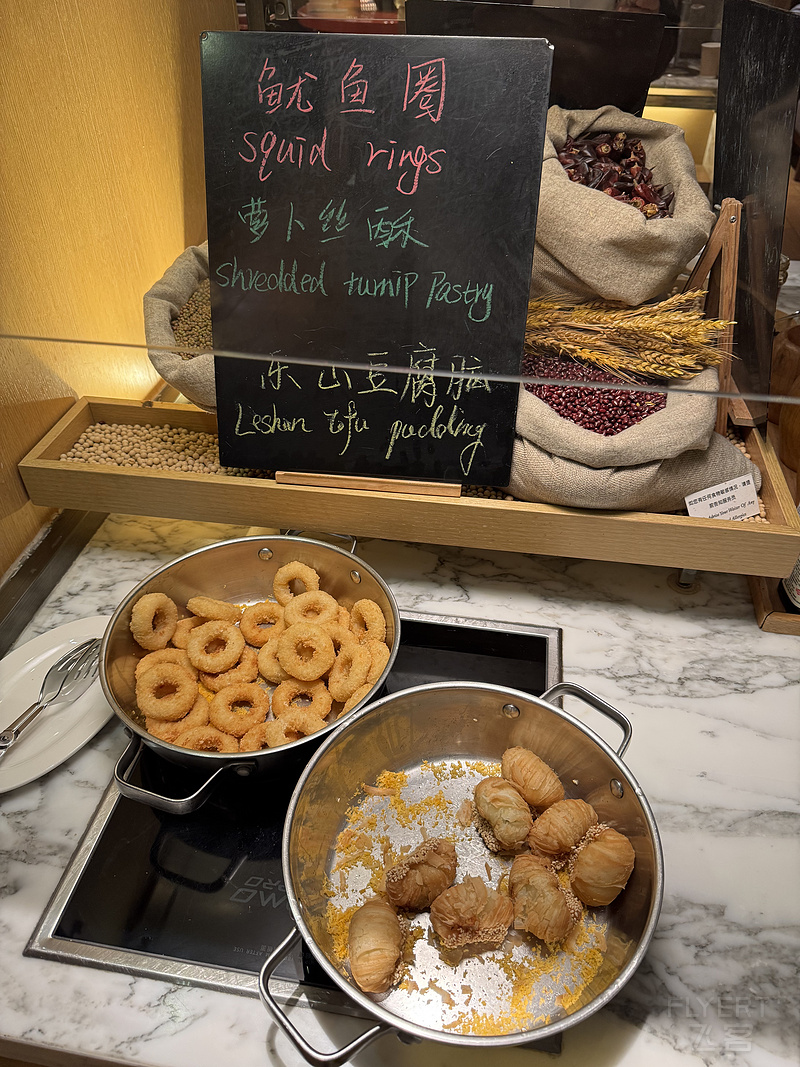 鱿鱼圈
squid rings
萝卜丝酥
shredded turnip Pastry
乐山豆腐脑
Leshan tofu pudding
如您有任何食物敏感情况,请提
FLYERT
飞客